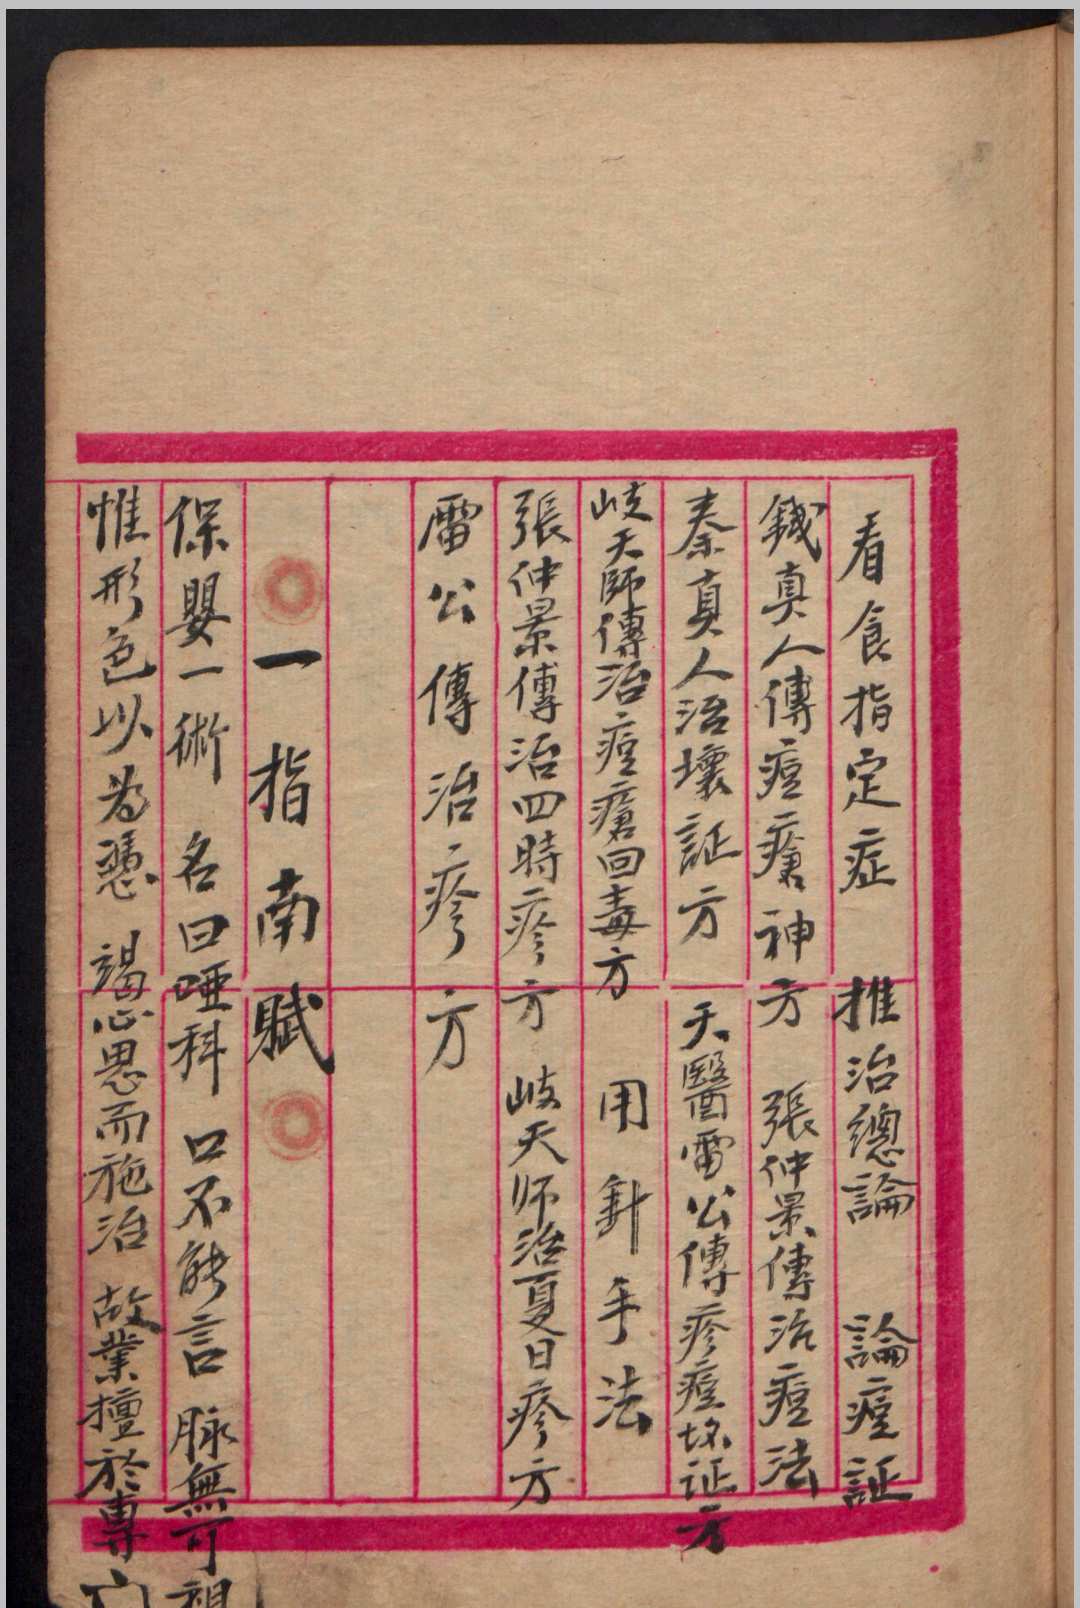 看食指定症　推治總論　論痘証
錢真人傳痘瘡神方　張仲景傳治痘法
秦真人治壞証方　天醫雷公傳疹痘坏证方
岐天師傳治痘瘡回毒方　用針手法
張仲景傳治四時疹方　岐天师治夏日疹方
雷公傳治疹方
一指南賦
保嬰一術　名曰哑科　口不能言　脉無可視
惟形色以為憑　竭心思而施治　故業擅於專